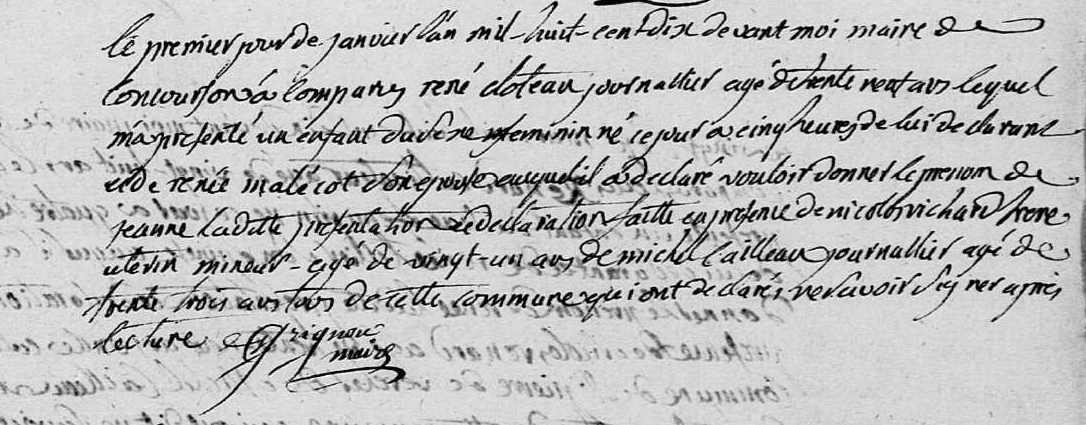 le premier jour de janvier l'an mil-huit-cent dix devant moi maire de
Concourson a Comparu rené cloteau journallier agé de trente neuf ans lequel
m'a presenté un enfant du sexe feminin né ce jour a cinq heures de lui declarant
et de renée malécot son epouse auquel il a declaré vouloir donner le prenom de
jeanne la ditte presentation et declaration faitte en presence de nicolas richard frere
uterin mineur agé de vingt-un ans de michel Cailleau journallier agé de
trente trois ans tous de cette commune qui ont declarés ne savoir signer après
lecture
maire